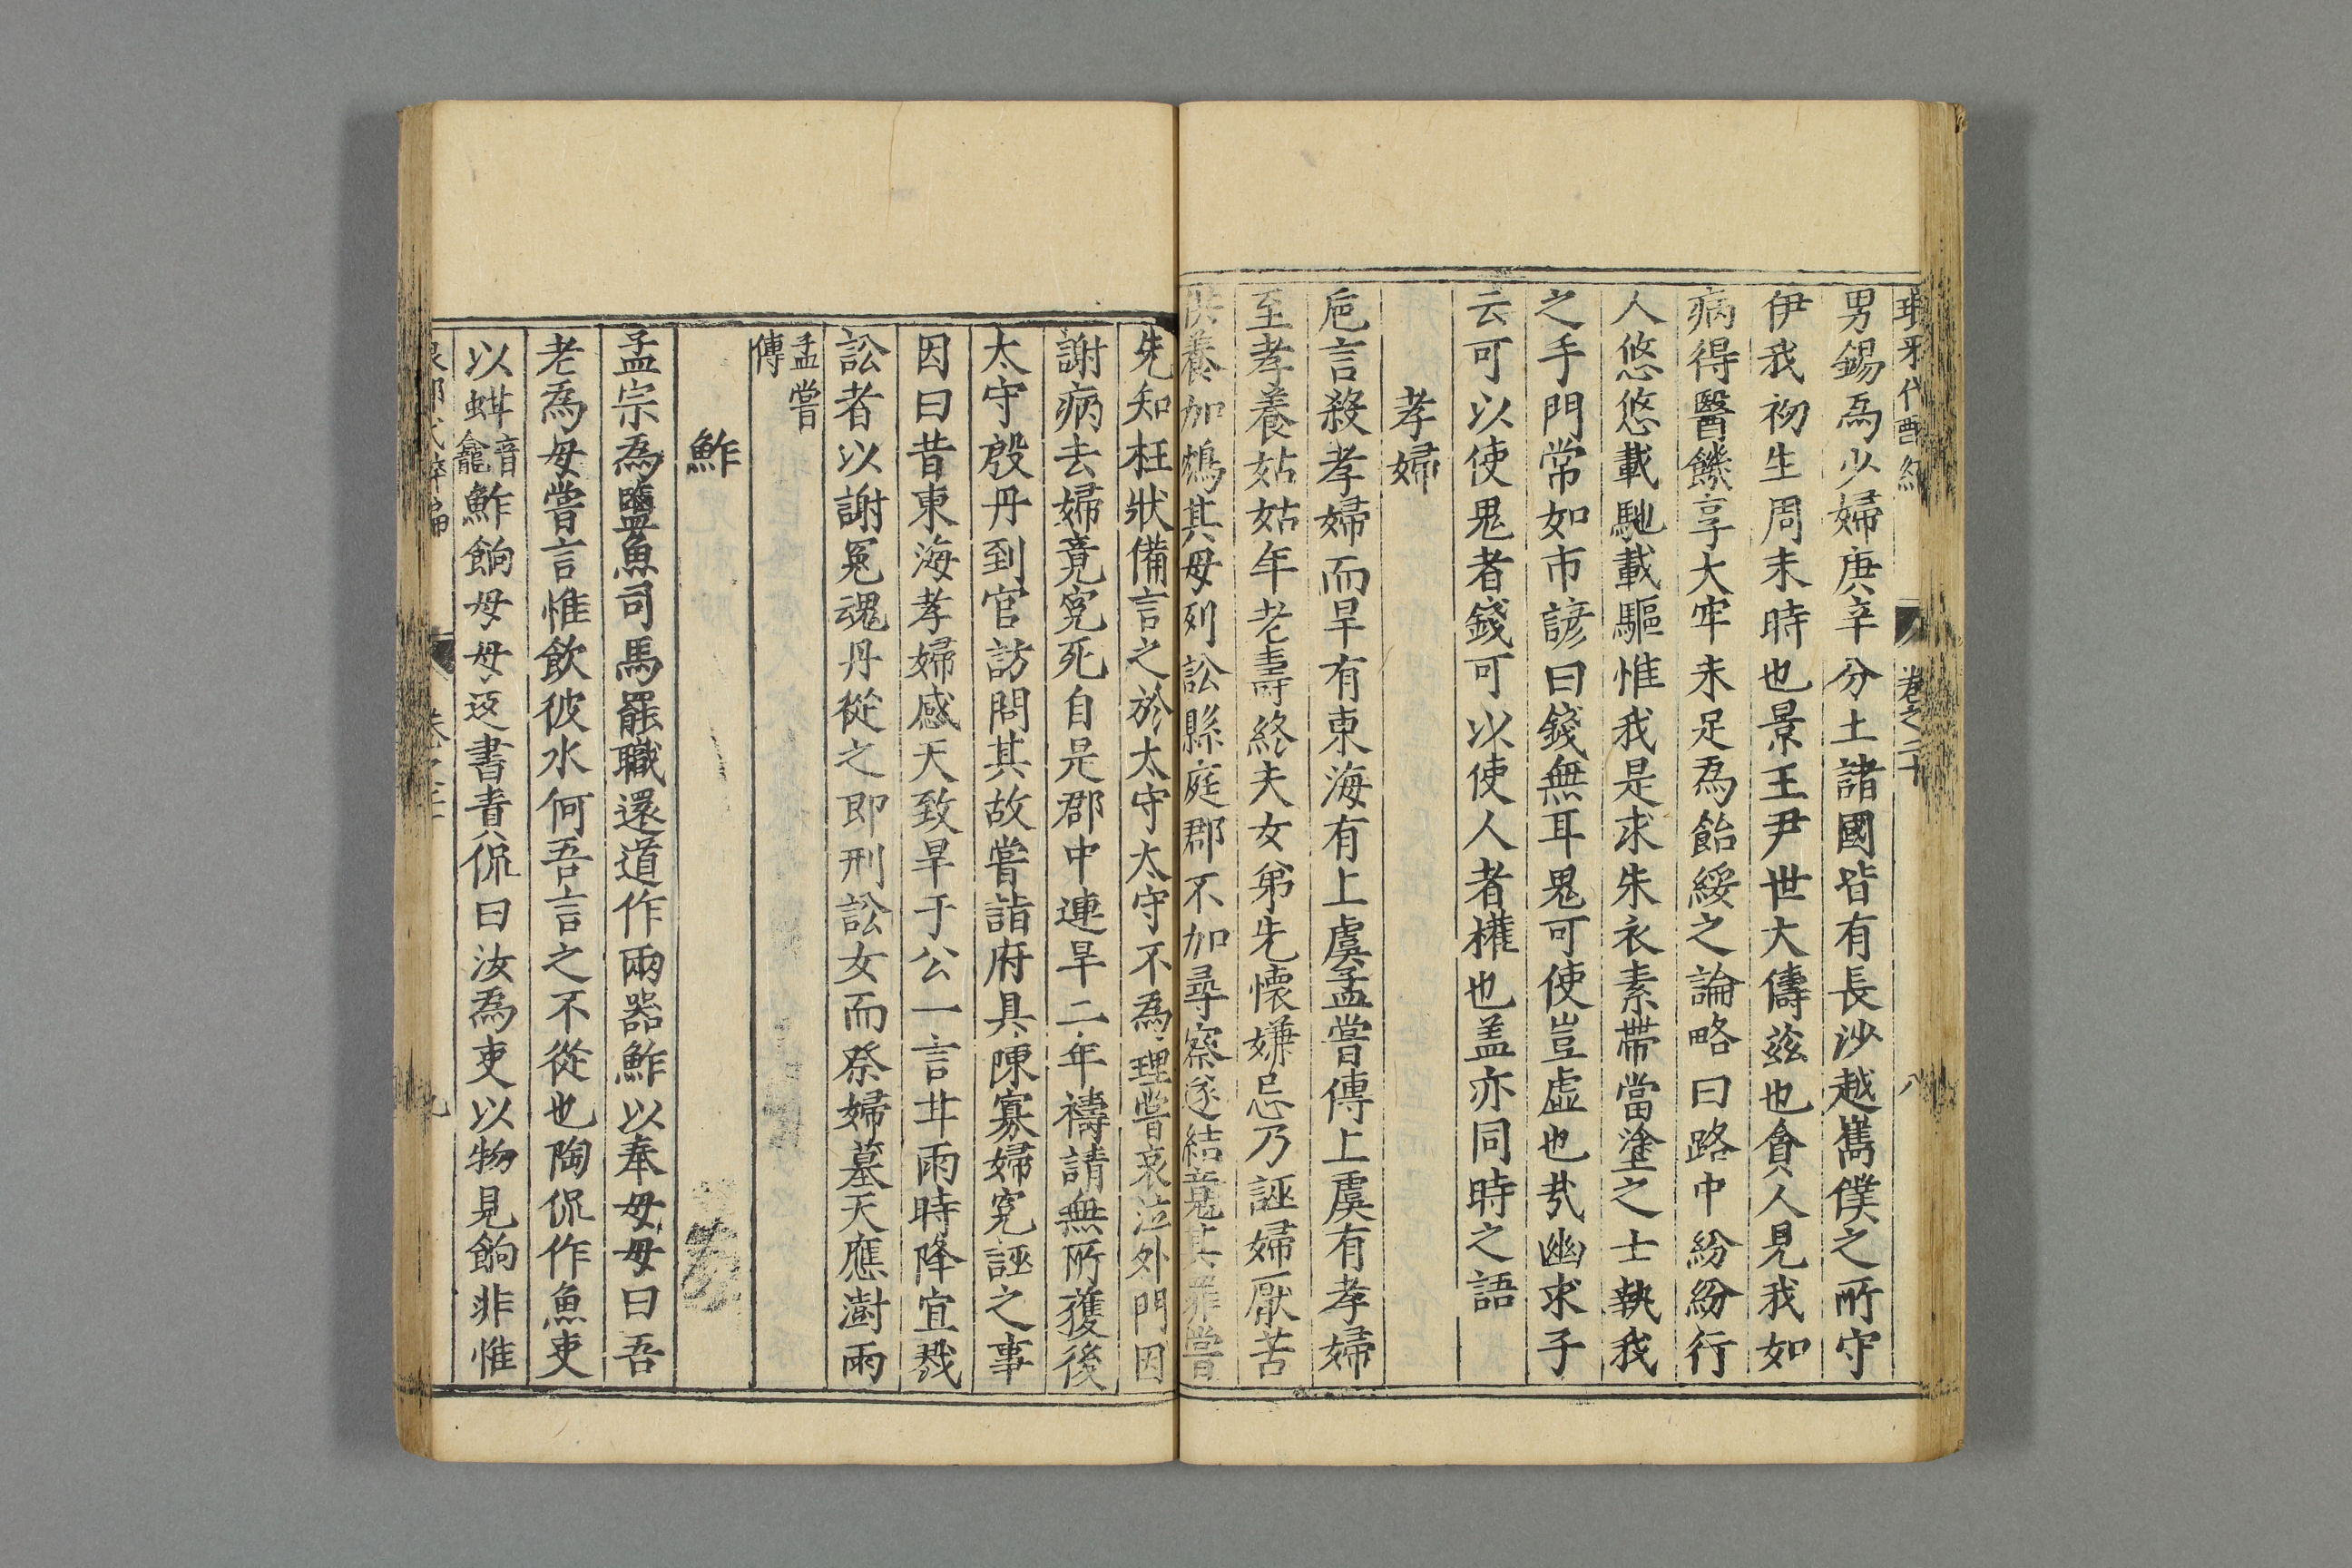 卷之二十 八
男錫為少婦庚辛分土諸國皆有長沙越嶲僕之所守
伊我初生周末時也景王尹世大儔茲也貪人見我如
病得醫饑享大牢未足為飴綏之論略曰路中紛紛行
人悠悠載馳載驅惟我是求朱衣素帶當塗之士執我
之手門常如市諺曰錢無耳鬼可使豈虛也㢤幽求子
云可以使鬼者錢可以使人者權也盖亦同時之語
孝婦
巵言殺孝婦而旱有東海有上虞孟嘗傳上虞有孝婦
至孝養姑姑年老壽終夫女弟先懷嫌忌乃誣婦厭苦
供養加鴆其母列訟縣庭郡不加尋察遂結竟其罪嘗
先知枉狀備言之於太守太守不為理嘗哀泣外門因
謝病去婦竟寃死自是郡中連旱二年禱請無所獲後
太守殷丹到官訪問其故嘗詣府具陳寡婦寃誣之事
因曰昔東海孝婦感天致旱于公一言甘雨時降宜戮
訟者以謝冤魂丹從之即刑訟女而祭婦墓天應澍雨
孟嘗
傳
鮓
孟宗為鹽魚司馬罷職還道作兩器鮓以奉母母曰吾
老為母嘗言惟飲彼水何吾言之不從也陶侃作魚吏
以蚶音龕鮓餉母母返書責侃曰汝為吏以物見餉非惟